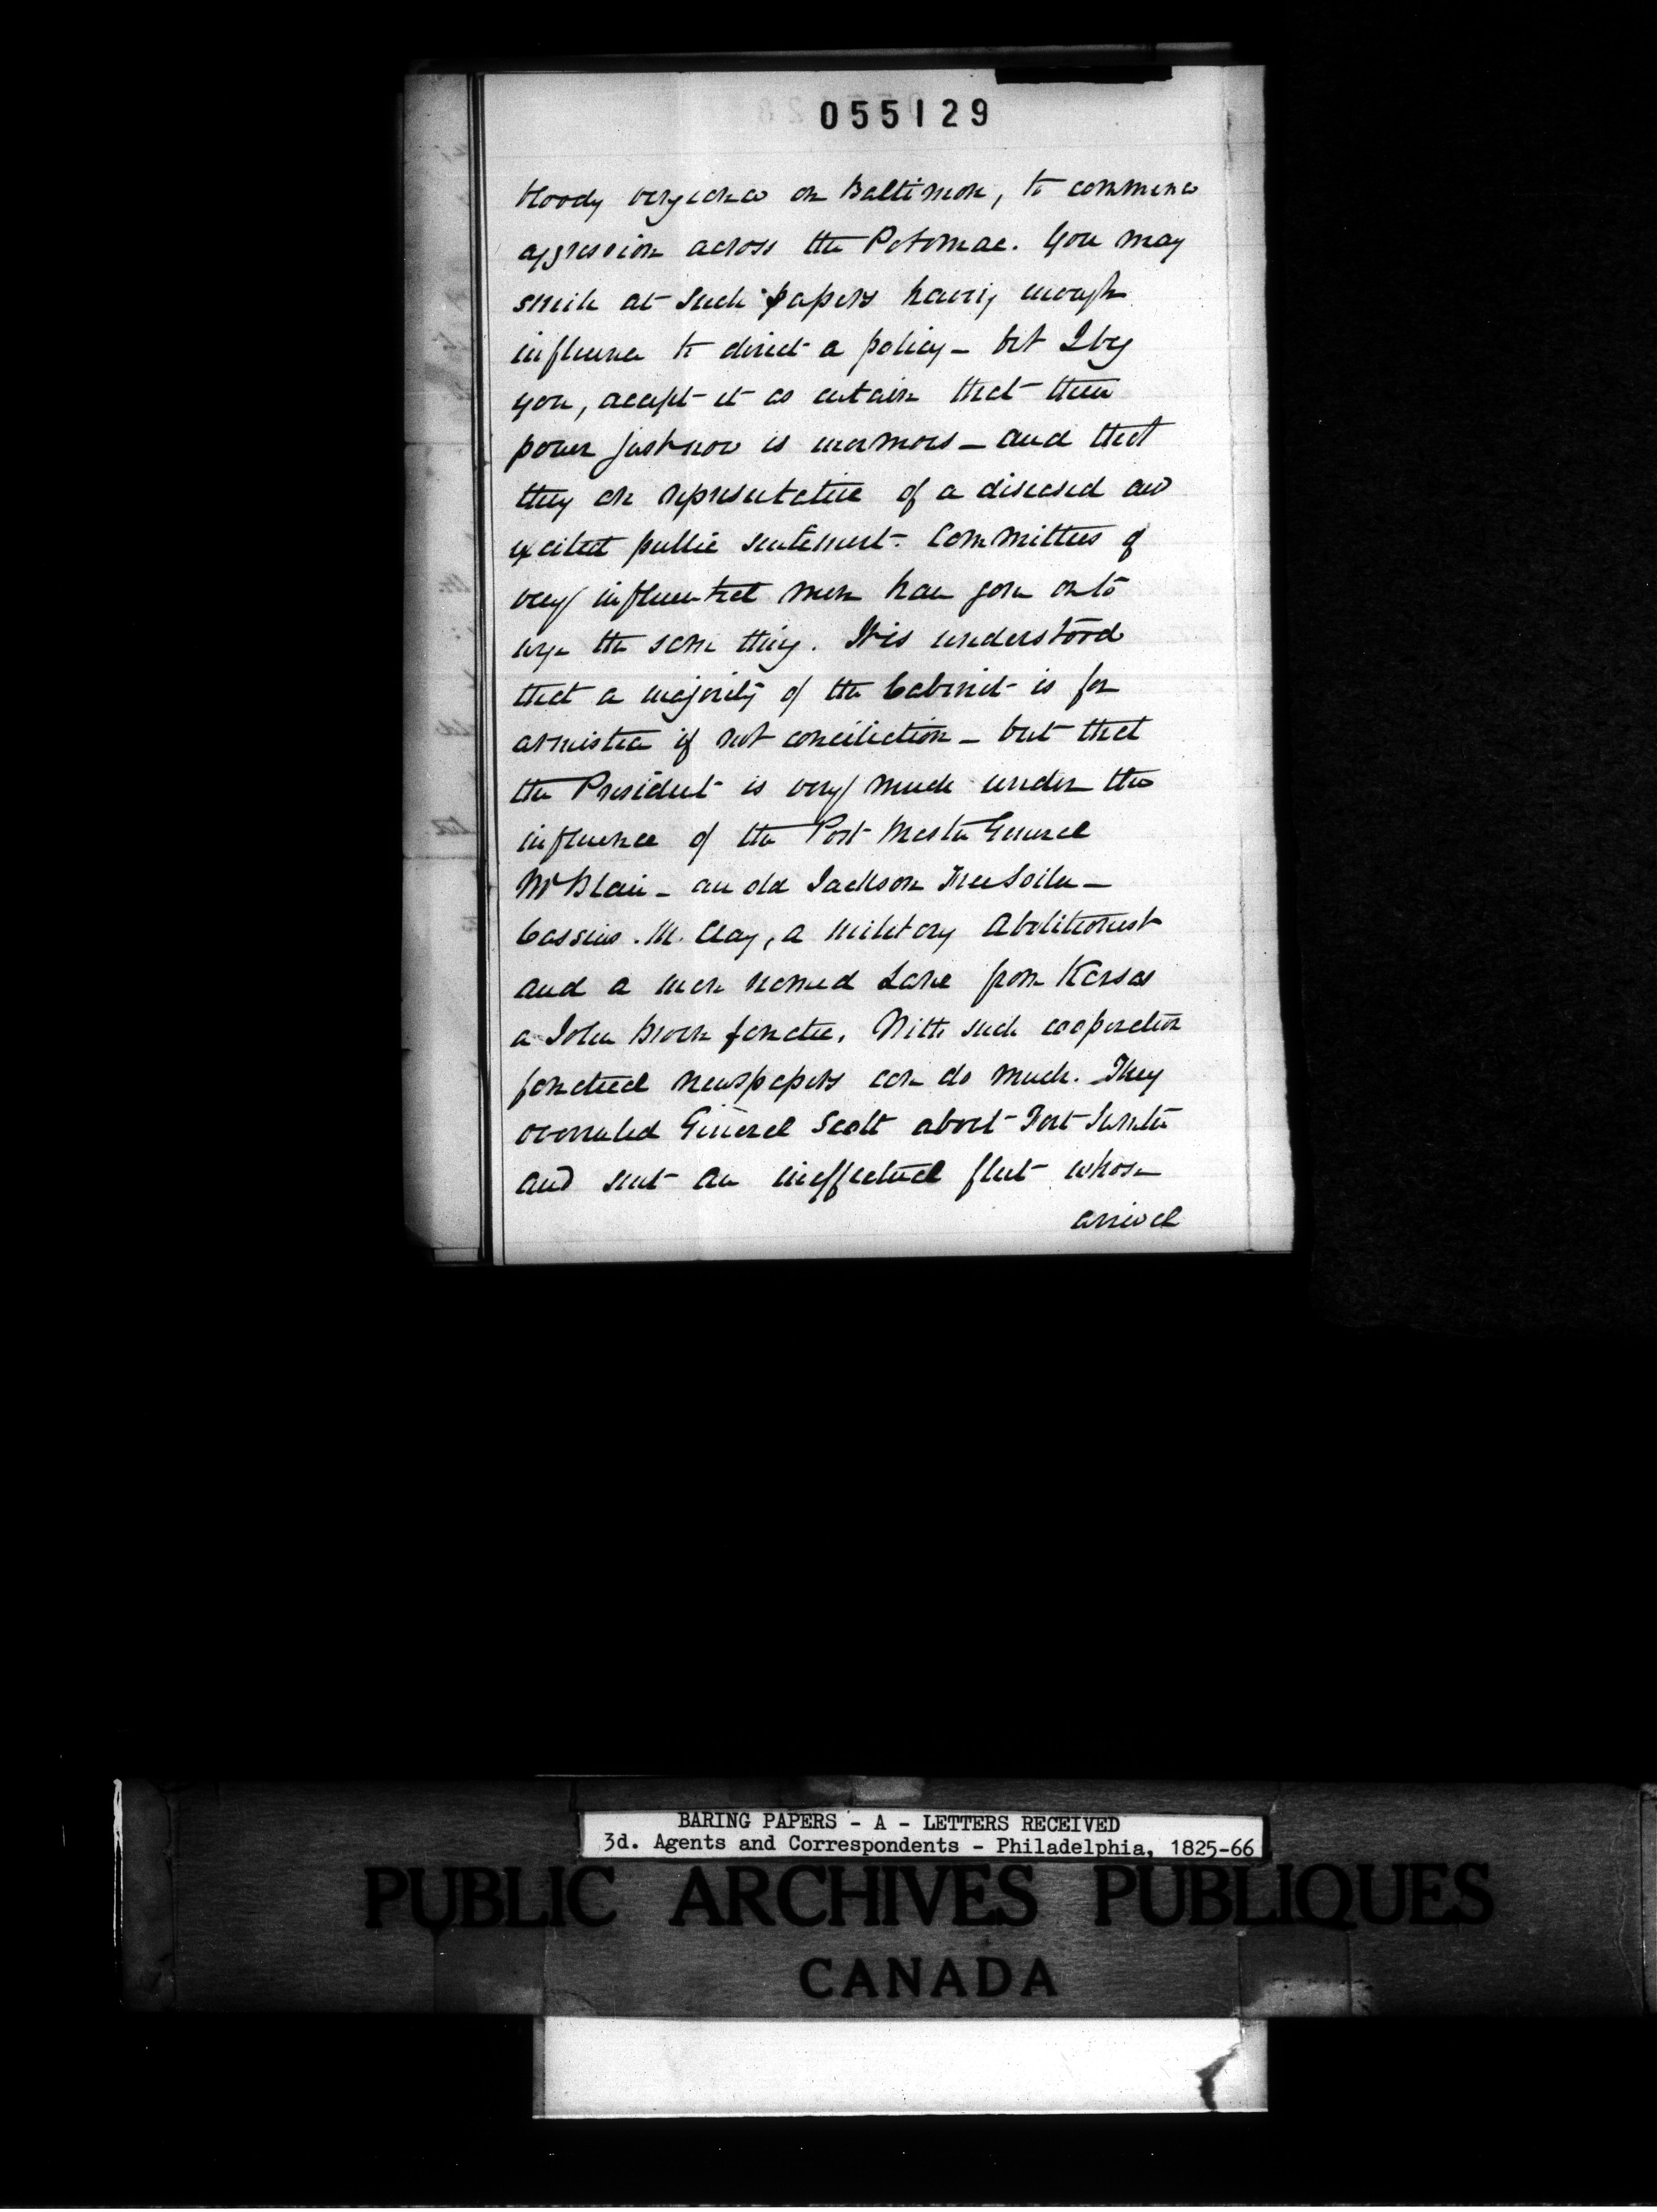 055129
bloody vengeance on Baltimore, to commence
aggression across the Potomac. You may
smile at such papers having enough
influence to direct a policy - but I beg
you, accept it as certain that their
power just now is enormous - and that
they are representative of a diseased and
excited public sentiment. Committees of
very influential men have gone on to
urge the same thing. It is understood
that a majority of the Cabinet is for
armistice if not conciliation - but that
the President is very much under the
influence of the Post Master General
Mr Blair - an old Jackson Free Soiler -
Cassius. M. Clay, a military Abolitionist
and a man named Lane from Kansas
a John Brown fanatic. With such cooperation
fanatical newspapers can do much. They
overruled General Scott about Fort Sumter
and sent an ineffectual fleet whose
arrival
BARING PAPERS - A - LETTERS RECEIVED
3d. Agents and Correspondents - Philadelphia, 1825-66
PUBLIC ARCHIVES PUBLIQUES
CANADA